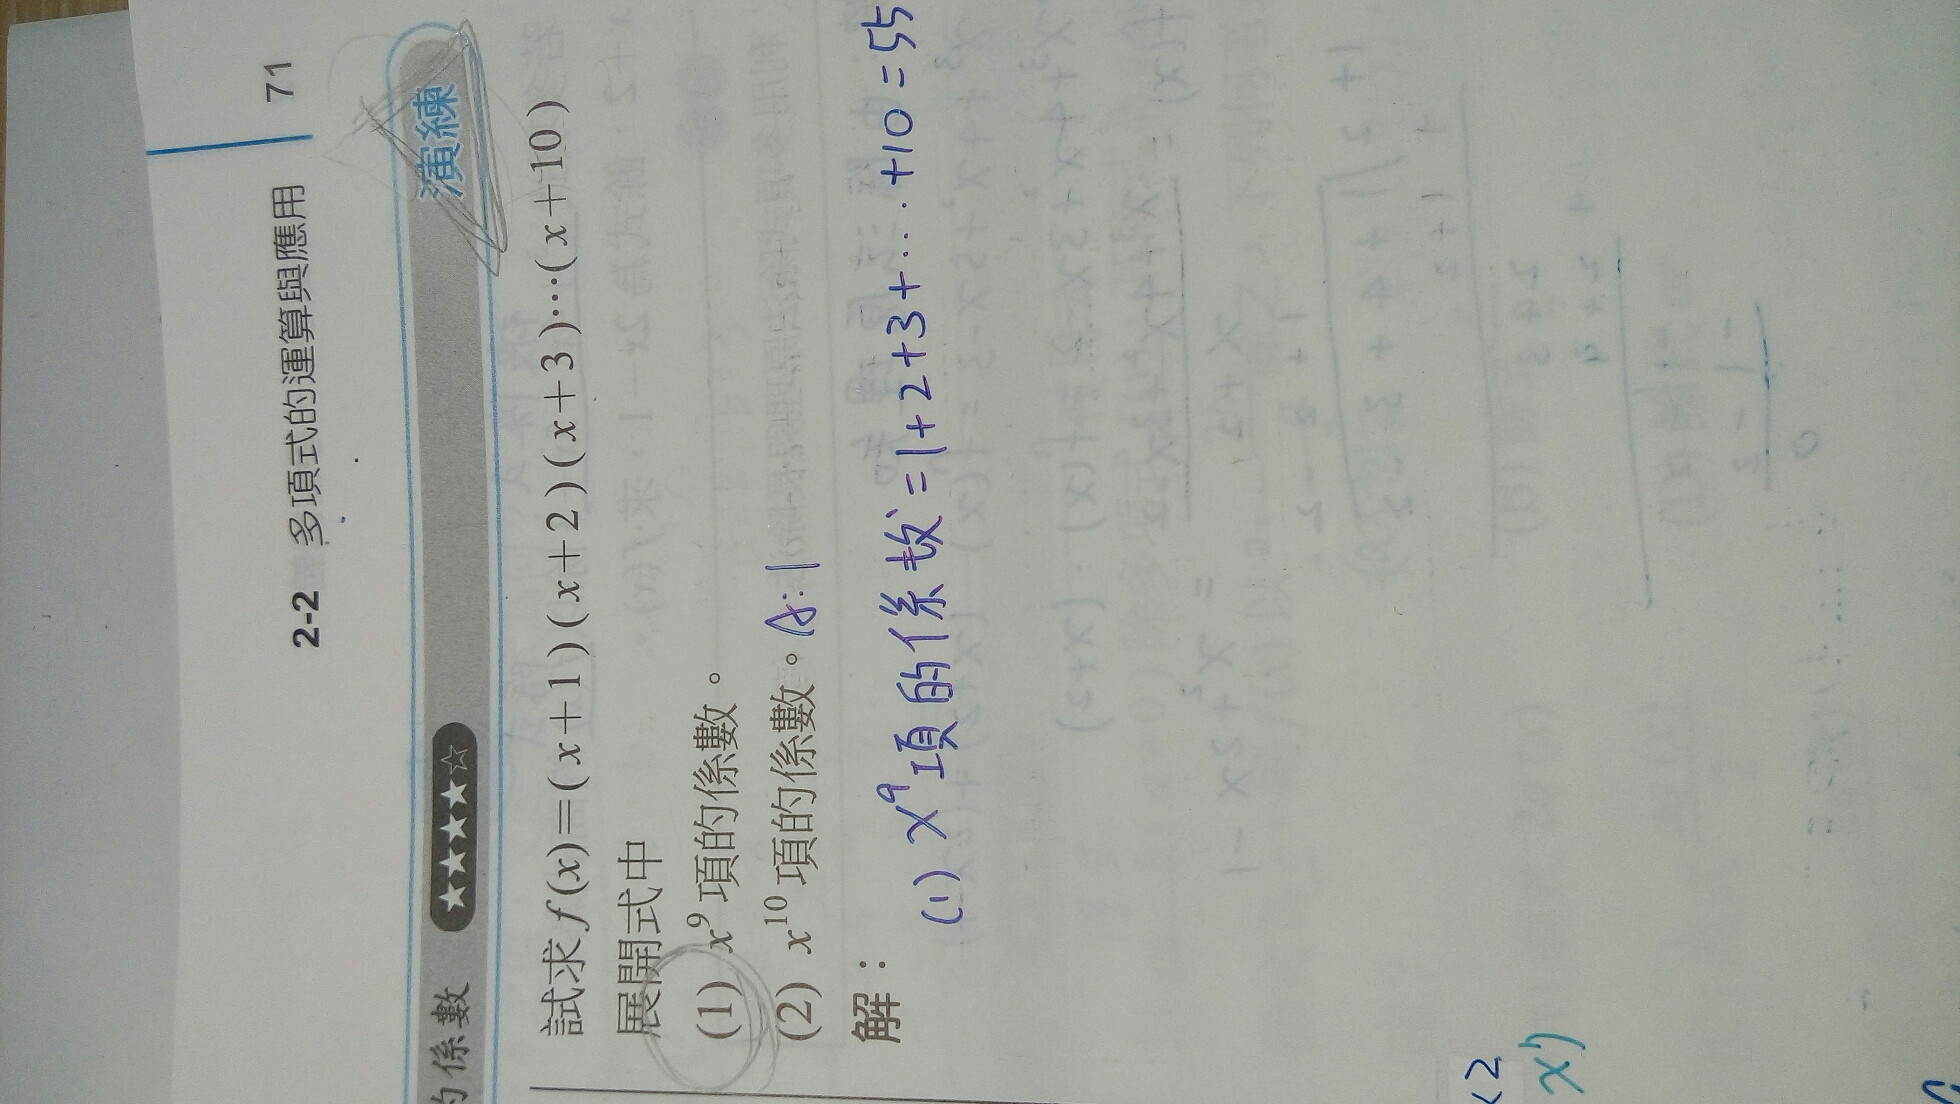 2-2 多項式的運算與應用 71
的係數 ★★★★☆ 演練
試求 f(x)=(x+1)(x+2)(x+3)⋯(x+10)
展開式中
(1) x⁹ 項的係數。
(2) x¹⁰ 項的係數。A:1
解：
(1) x⁹項的係数=1+2+3+...+10=55